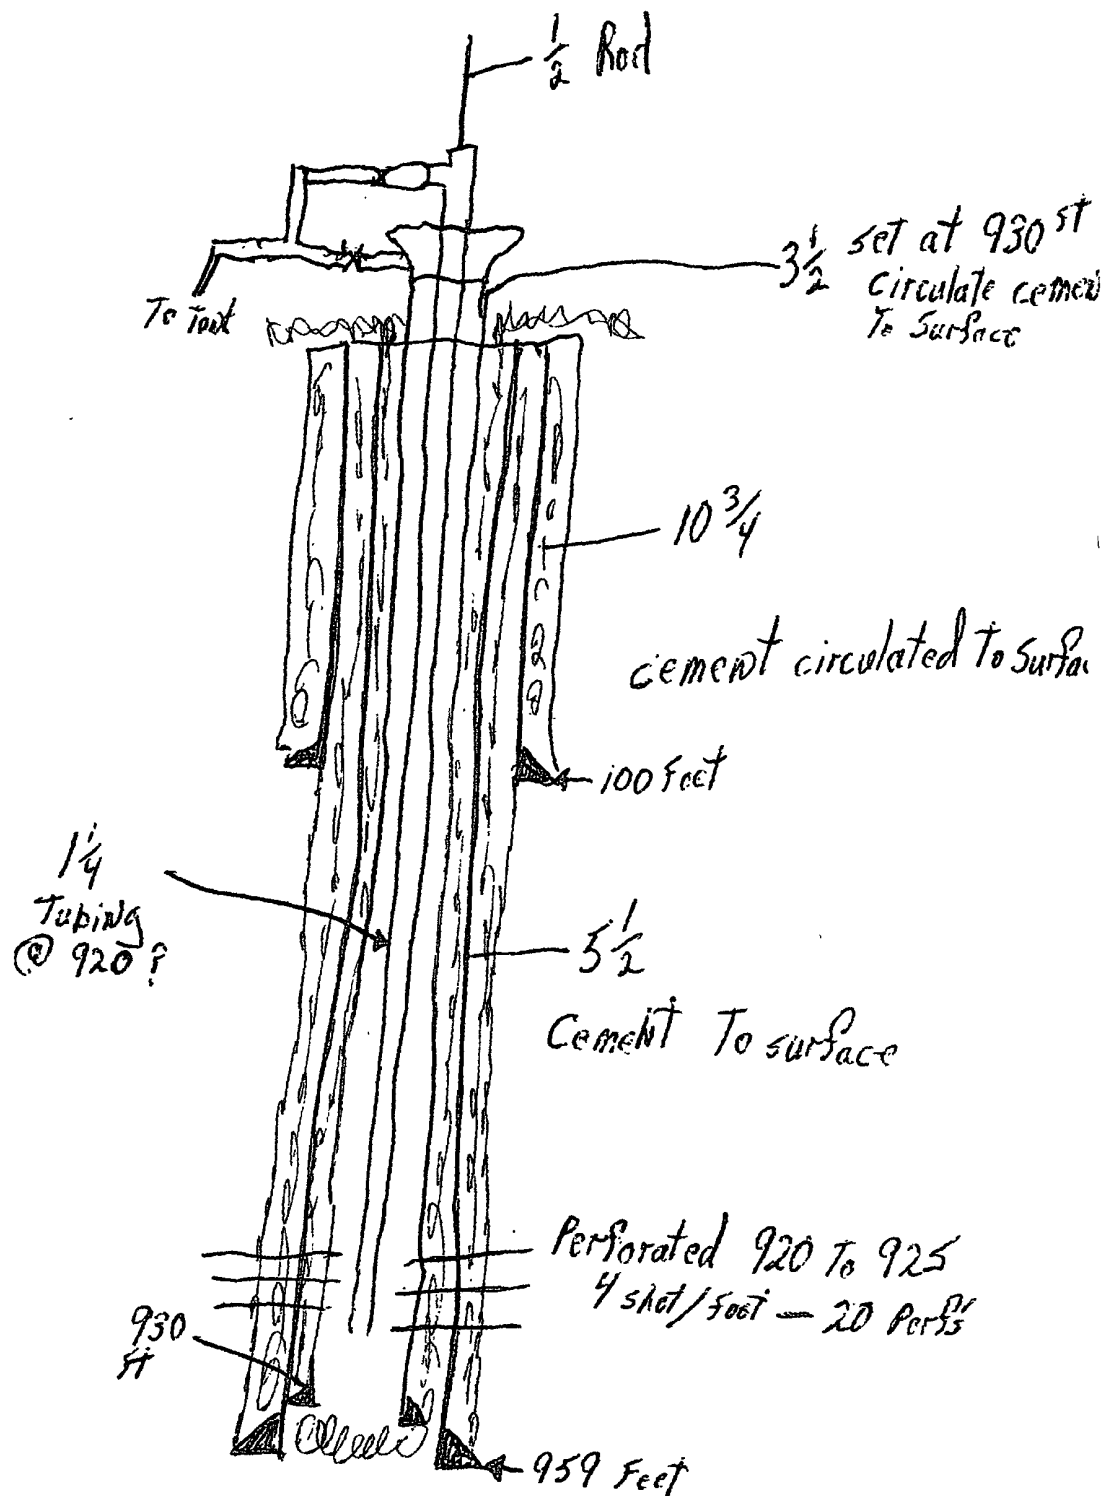 1/2 Rod
3 1/2 set at 930 st
circulate cemen
To Surface
To
10 3/4
cement circulated To Surfac
100 Feet
1 1/4
Tubing
@ 920 ?
5 1/2
Cement To surface
Perforated 920 To 925
4 shot/foot — 20 Perfs
930
ft
959 Feet